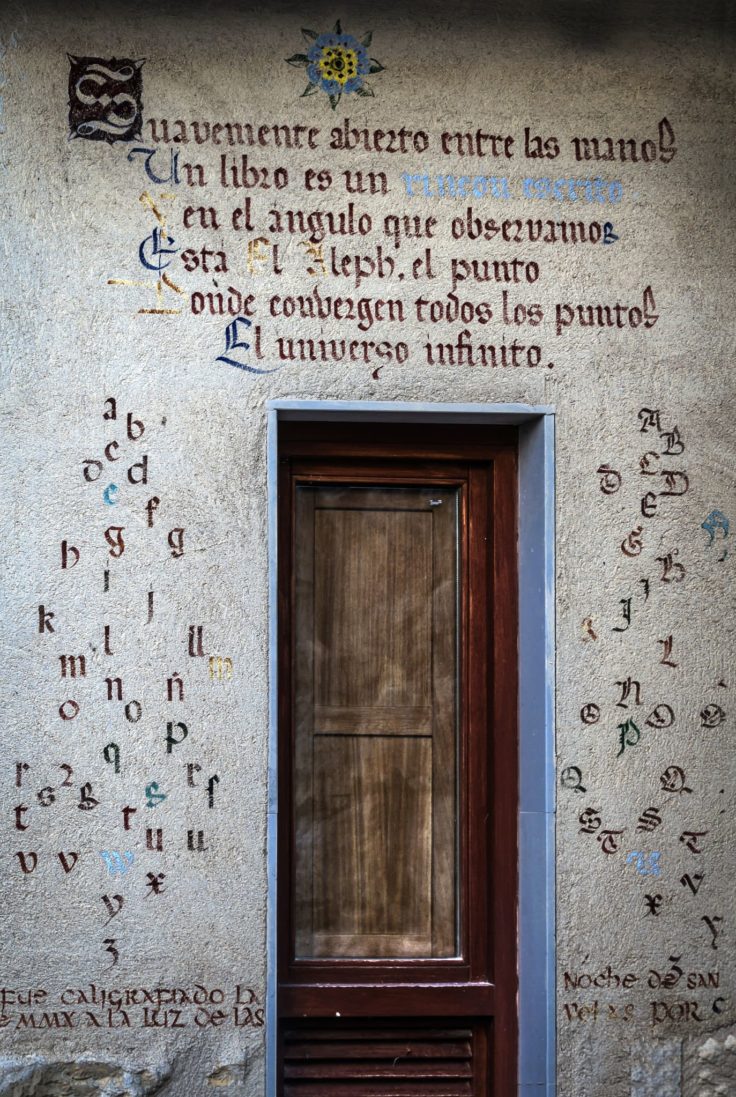 Suavemente abierto entre las manos
Un libro es un rincon escrito
Y en el angulo que observamos
Esta El Aleph, el punto
Donde convergen todos los puntos
El universo infinito.
a b
c
d d
e
f
h g g
i
j
k
l ll
m m
n ñ
o o
p
q
r 2 r
s g s f
t t
u u
v v w
x
y
z
A
B
C
D D
E
A
G
H
I
J
L
N
O O O
P
Q Q
S S
T T
U
V
X
Y
FUE CALIGRAFIADO LA NOCHE DE SAN
MMX A LA LUZ DE LAS VELAS POR